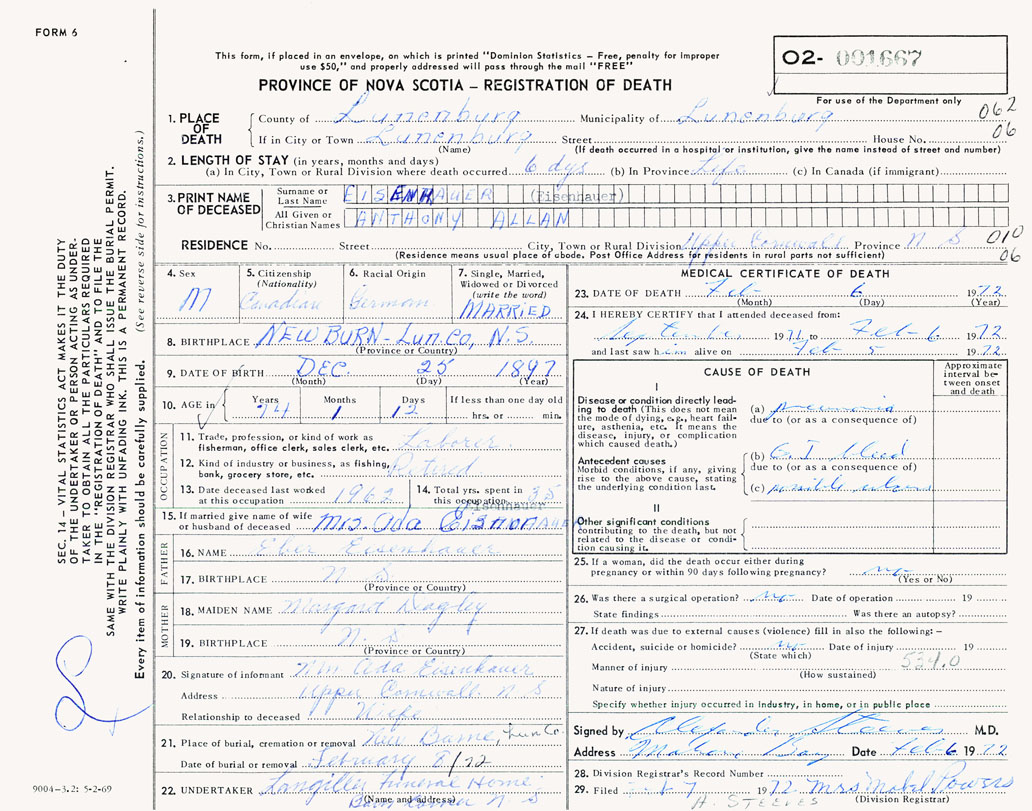 FORM 6
O2- 001667
This form, if placed in an envelope, on which is printed "Dominion Statistics – Free, penalty for improper
use $50," and properly addressed will pass through the mail "FREE"
PROVINCE OF NOVA SCOTIA – REGISTRATION OF DEATH
For use of the Department only
1. PLACE OF DEATH
County of Lunenburg Municipality of Lunenburg 062
If in City or Town Lunenburg Street House No. 06
(Name) (If death occurred in a hospital or institution, give the name instead of street and number)
2. LENGTH OF STAY (in years, months and days)
(a) In City, Town or Rural Division where death occurred 6 dys (b) In Province Life (c) In Canada (if immigrant)
3. PRINT NAME OF DECEASED
Surname or Last Name EISENHAUER (Eisenhauer)
All Given or Christian Names ANTHONY ALLAN
RESIDENCE No. Street City, Town or Rural Division Upper Cornwall Province N S 010
(Residence means usual place of abode. Post Office Address for residents in rural parts not sufficient) 06
4. Sex
M
5. Citizenship
(Nationality)
Canadian
6. Racial Origin
German
7. Single, Married,
Widowed or Divorced
(write the word)
MARRIED
8. BIRTHPLACE NEW BURN - Lun. Co, N.S.
(Province or Country)
9. DATE OF BIRTH DEC. 25 1897
(Month) (Day) (Year)
10. AGE in Years Months Days If less than one day old
74 1 12 hrs. or min.
OCCUPATION
11. Trade, profession, or kind of work as
fisherman, office clerk, sales clerk, etc. Laborer
12. Kind of industry or business, as fishing,
bank, grocery store, etc. Retired
13. Date deceased last worked
at this occupation 1962
14. Total yrs. spent in
this occupation 35
Eisenhauer
15. If married give name of wife
or husband of deceased Mrs. Ada Eisnhauer
FATHER
16. NAME Eber Eisenhauer
17. BIRTHPLACE N. S
(Province or Country)
MOTHER
18. MAIDEN NAME Margaret
19. BIRTHPLACE N. S
(Province or Country)
20. Signature of informant Mrs Ada Eisenhauer
Address Upper Cornwall N S
Relationship to deceased Wife
21. Place of burial, cremation or removal New Lun Co.
Date of burial or removal February 8/72
22. UNDERTAKER Funeral Home
(Name and address) N S
MEDICAL CERTIFICATE OF DEATH
23. DATE OF DEATH Feb 6 1972
(Month) (Day) (Year)
24. I HEREBY CERTIFY that I attended deceased from:
September 1971 to Feb 6 1972
and last saw him alive on Feb 5 1972
CAUSE OF DEATH
Approximate
interval between
onset
and death
I
Disease or condition directly leading
to death (This does not mean
the mode of dying, e.g., heart failure,
asthenia, etc. It means the
disease, injury, or complication
which caused death.)
(a) pneumonia
due to (or as a consequence of)
Antecedent causes
Morbid conditions, if any, giving
rise to the above cause, stating
the underlying condition last.
(b) G I bleed
due to (or as a consequence of)
(c) possible ulcer
II
Other significant conditions
contributing to the death, but not
related to the disease or condition
causing it.
25. If a woman, did the death occur either during
pregnancy or within 90 days following pregnancy? no
(Yes or No)
26. Was there a surgical operation? no Date of operation 19
State findings Was there an autopsy?
27. If death was due to external causes (violence) fill in also the following: –
Accident, suicide or homicide? no Date of injury 19
(State which) 534.0
Manner of injury
(How sustained)
Nature of injury
Specify whether injury occurred in Industry, in home, or in public place
Signed by M.D.
Address Mahone Bay Date Feb 6 1972
28. Division Registrar's Record Number
29. Filed Feb 7 1972 Mrs Mabel Powers
H. STEEVES (Division Registrar)
SEC. 14 – VITAL STATISTICS ACT MAKES IT THE DUTY
OF THE UNDERTAKER OR PERSON ACTING AS UNDERTAKER
TO OBTAIN ALL THE PARTICULARS REQUIRED
IN THE "REGISTRATION OF DEATH" AND TO FILE THE
SAME WITH THE DIVISION REGISTRAR WHO SHALL ISSUE THE BURIAL PERMIT.
WRITE PLAINLY WITH UNFADING INK. THIS IS A PERMANENT RECORD.
Every item of information should be carefully supplied. (See reverse side for instructions.)
9004-3.2: 5-2-69